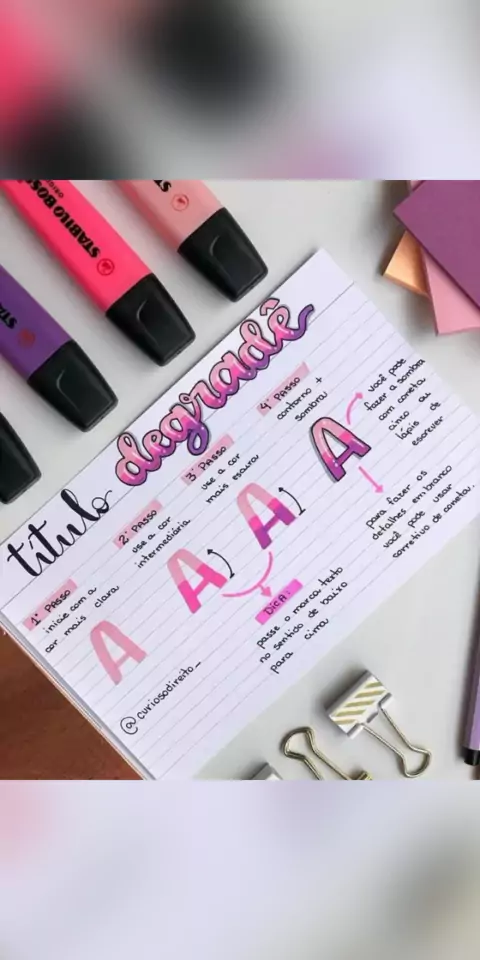 STABILO BOSS
ORIGINAL
título degradê
1° PASSO
inicie com a
cor mais clara
A
2° PASSO
use a cor
intermediária
A
3° PASSO
use a cor
mais escura
A
4° PASSO
contorno +
sombra
A
você pode
fazer a sombra
com caneta
cinza ou
lápis de
escrever
para fazer os
detalhes em branco
você pode usar
corretivo de caneta.
DICA:
passe o marca texto
no sentido de baixo
para cima
@curiosodireito_